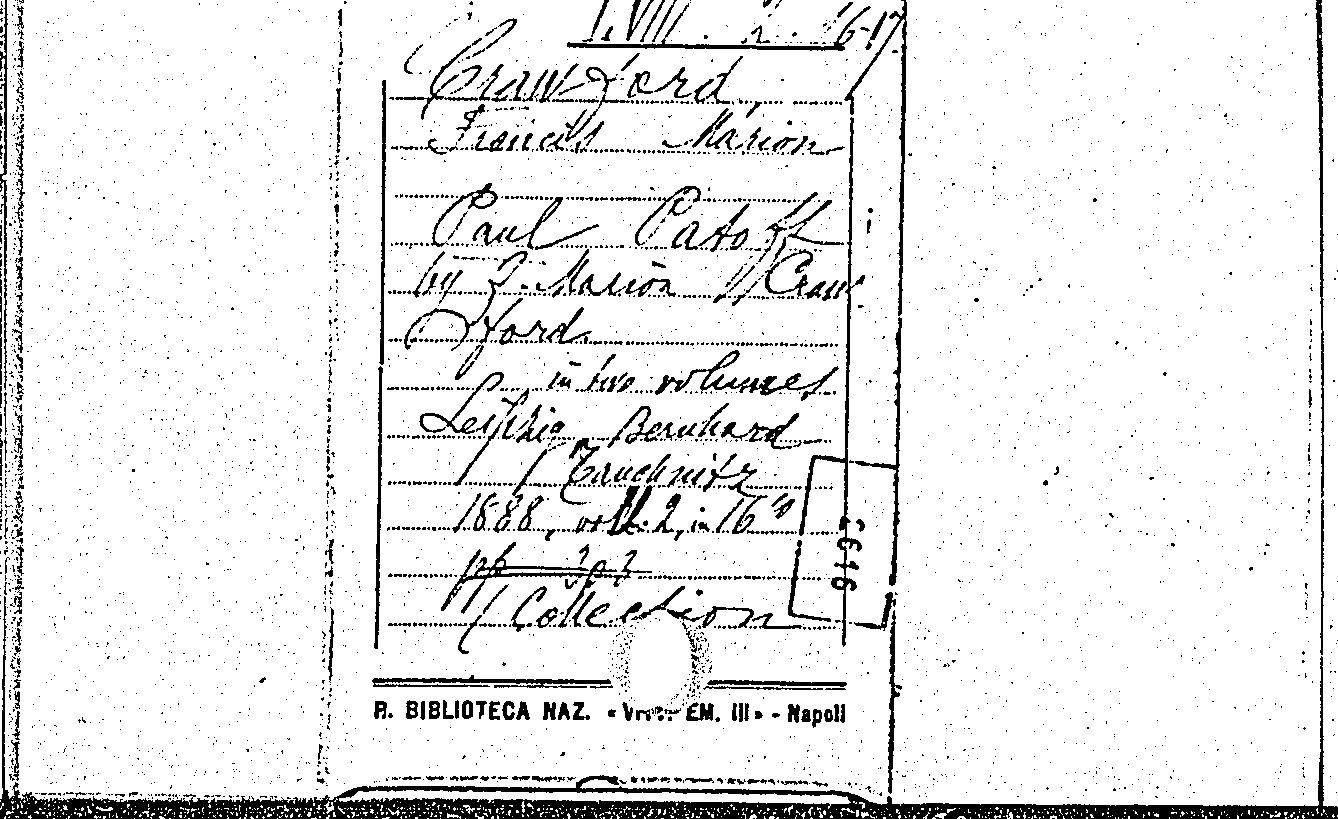 L.VIII. 2. 16-17
Crawford,
Francis Marion
Paul Patoff
by F. Marion Craw
ford
in two volumes
Leipzig Bernhard
Tauchnitz
1888, voll. 2, in 16°
pp
(Collection
R. BIBLIOTECA NAZ. « VITT. EM. III» - Napoli